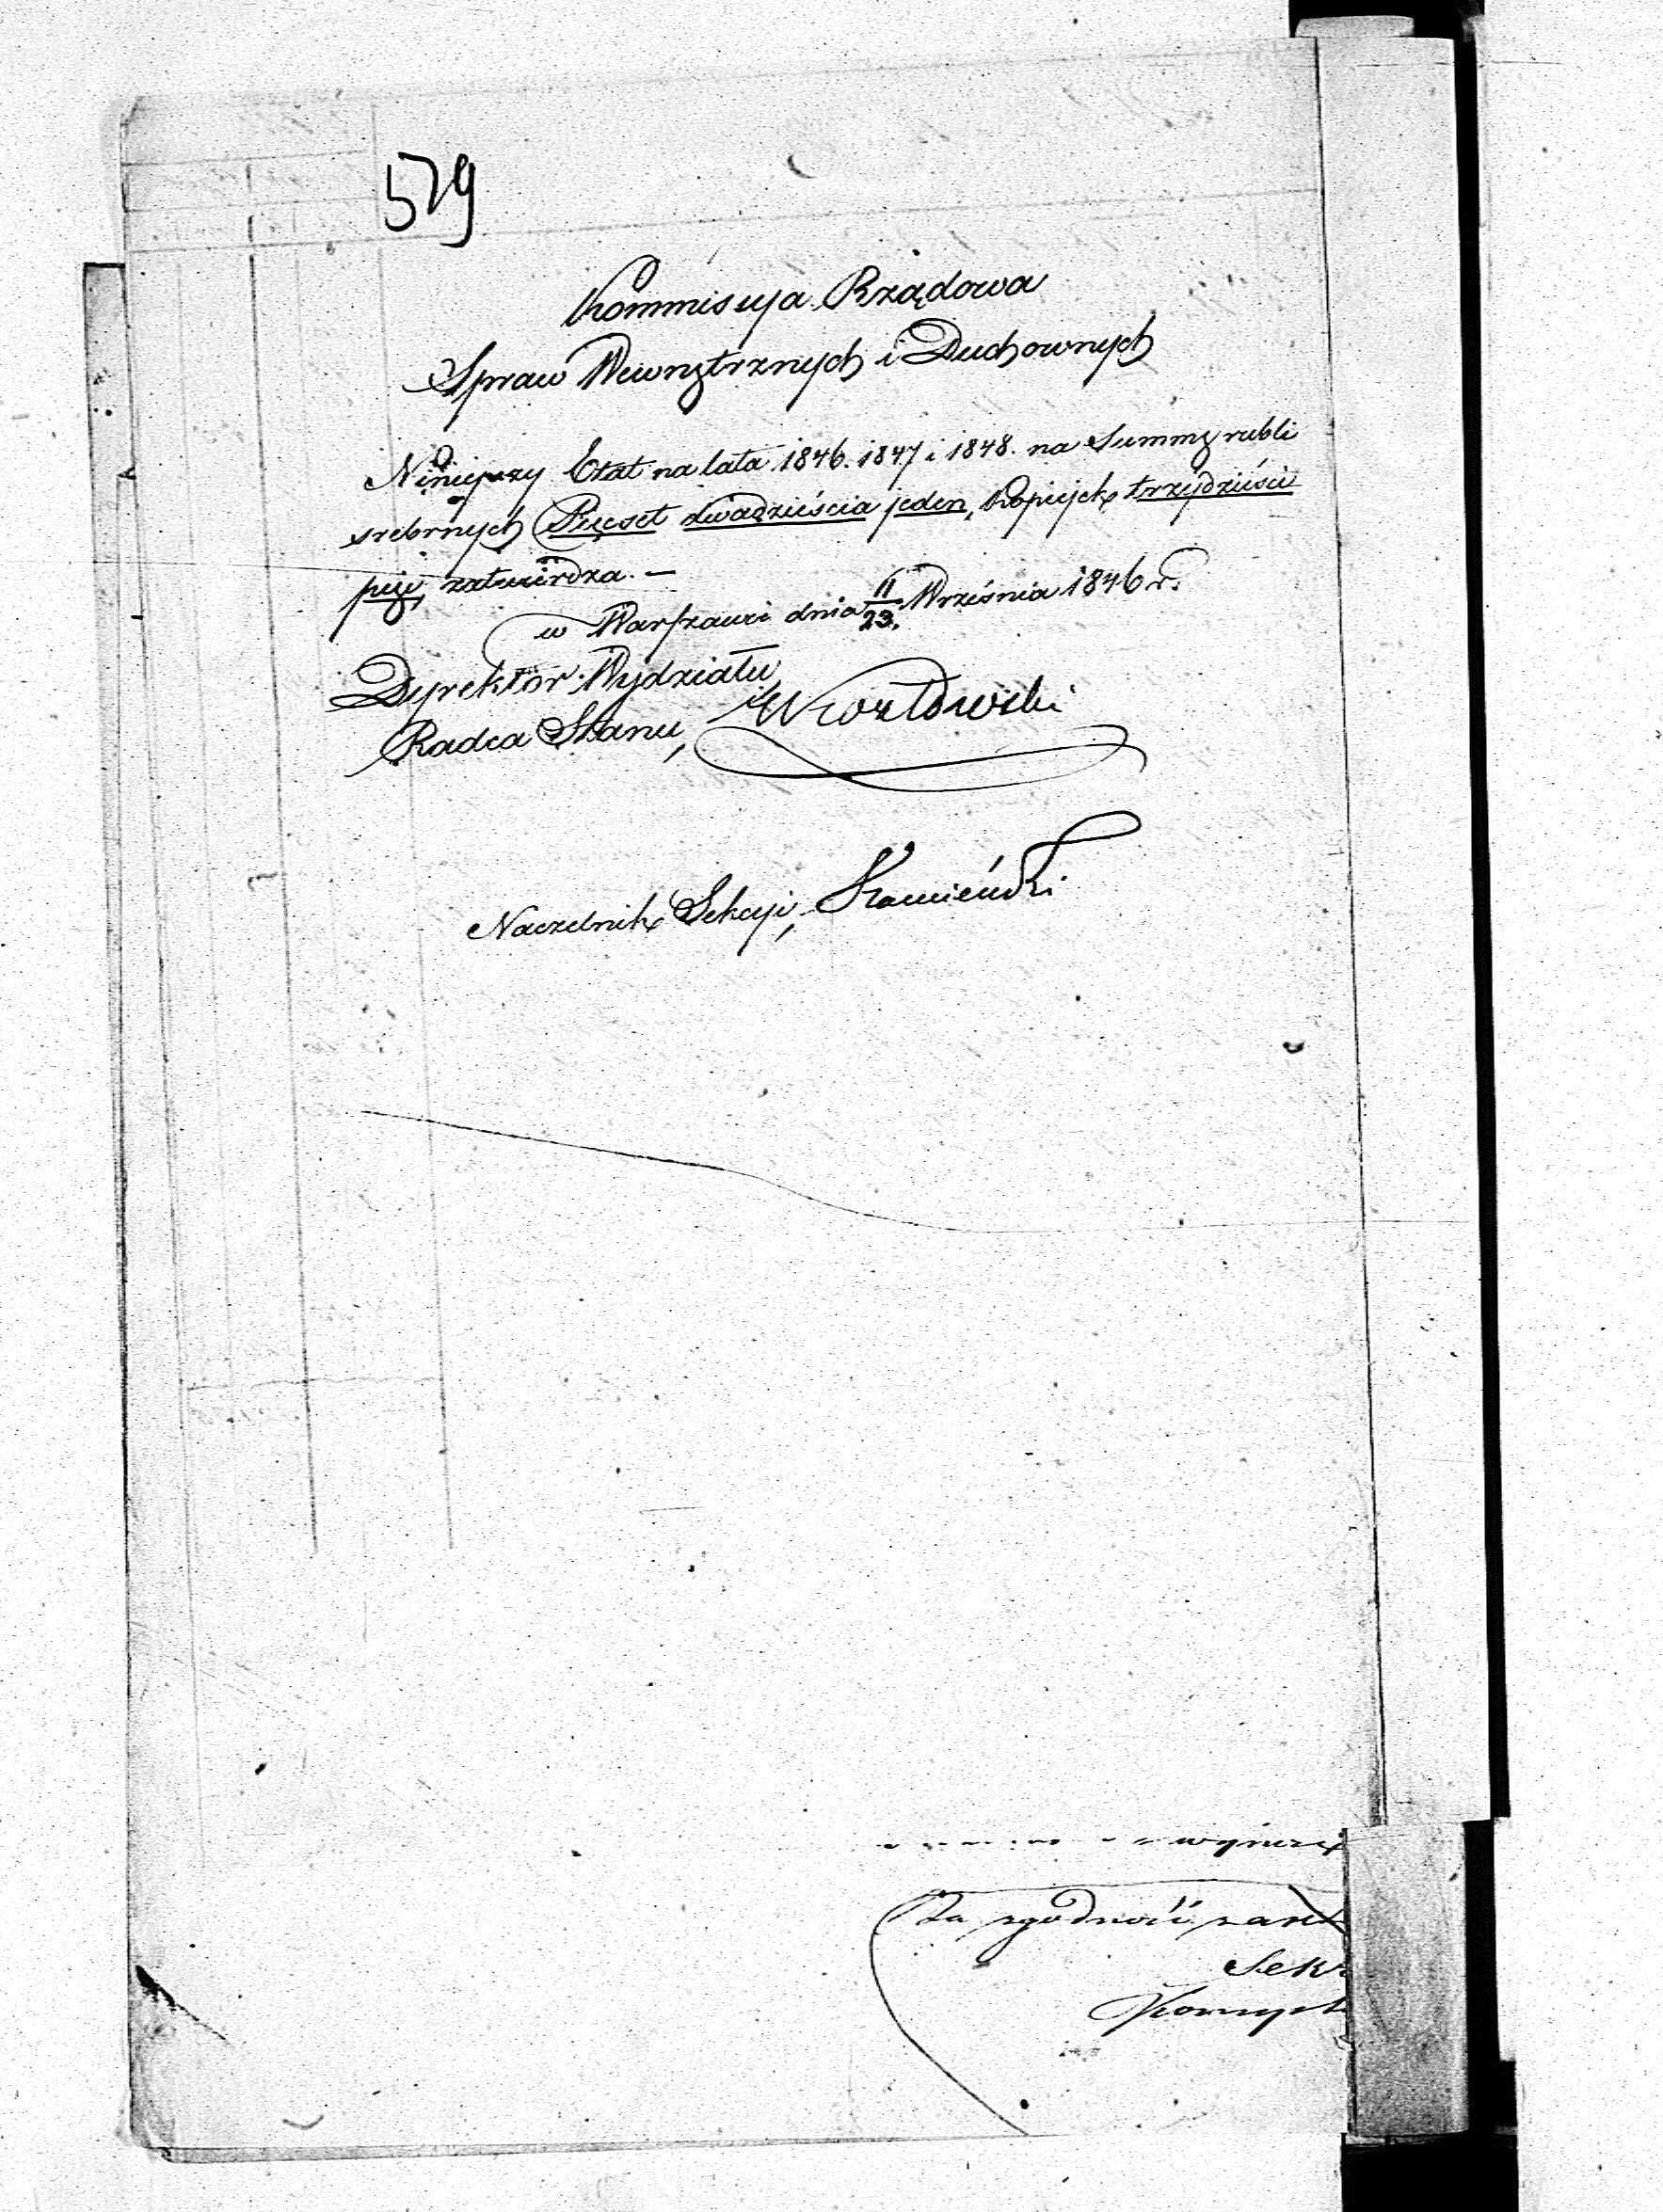 579
Kommissyja Rządowa
Spraw Wewnętrznych i Duchownych
Niniejszy Etat na lata 1846. 1847 i 1848. na Summę rubli
srebrnych Pięcset dwadzieścia jeden, kopiejek trzydzieści
pięć, zatwierdza. —
w Warszawie dnia 11/23. Września 1846 r.
Dyrektor Wydziału
Radca Stanu, Kozłowski
Naczelnik Sekcyi, Kamieński
Za zgodność
Sekr